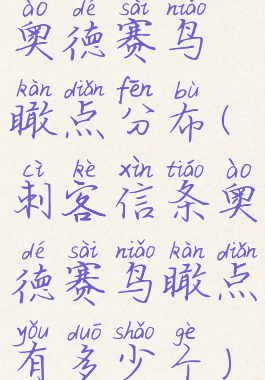 ào dé sài niǎo
奥德赛鸟
kàn diǎn fēn bù
瞰点分布(
cì kè xìn tiáo ào
刺客信条奥
dé sài niǎo kàn diǎn
德赛鸟瞰点
yǒu duō shǎo gè
有多少个)